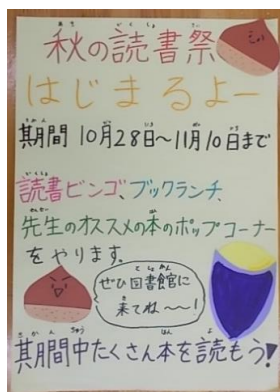 秋の読書祭
はじまるよー
期間 10月28日～11月10日まで
読書ビンゴ、ブックランチ、
先生のオススメの本のポップコーナー
をやります。
ぜひ図書館に
来てね～～!
期間中たくさん本を読もう!